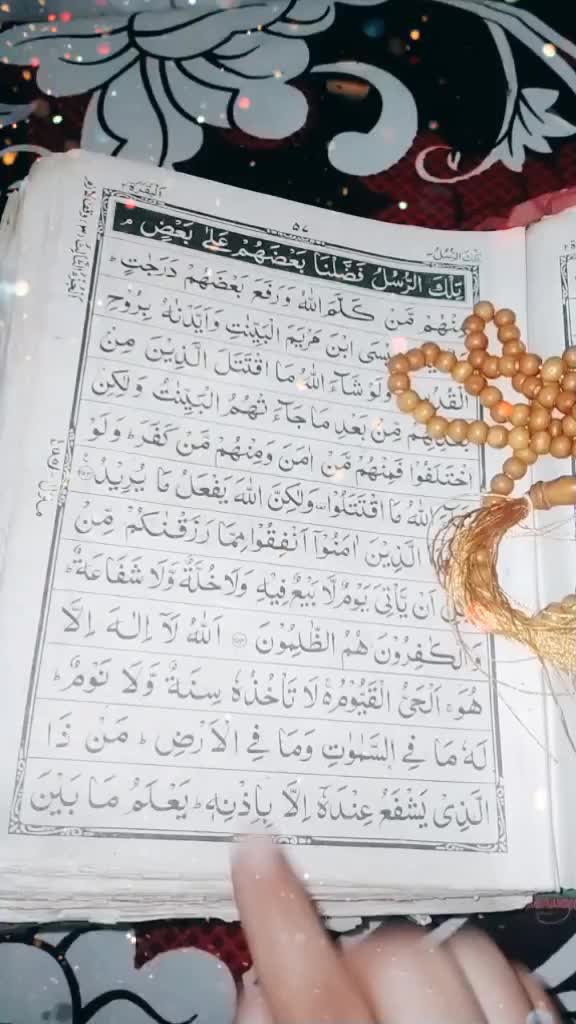 البقرة ٢
٥٧
تلك الرسل ٣
تِلْكَ الرُّسُلُ فَضَّلْنَا بَعْضَهُمْ عَلٰى بَعْضٍ ۘ
مِنْهُمْ مَّنْ كَلَّمَ اللّٰهُ وَرَفَعَ بَعْضَهُمْ دَرَجٰتٍ ؕ
عِيْسَى ابْنَ مَرْيَمَ الْبَيِّنٰتِ وَاَيَّدْنٰهُ بِرُوْحِ
الْقُدُسِ وَلَوْ شَآءَ اللّٰهُ مَا اقْتَتَلَ الَّذِيْنَ مِنْ
بَعْدِهِمْ مِّنْ بَعْدِ مَا جَآءَتْهُمُ الْبَيِّنٰتُ وَلٰكِنِ
اخْتَلَفُوْا فَمِنْهُمْ مَّنْ اٰمَنَ وَمِنْهُمْ مَّنْ كَفَرَ ؕ وَلَوْ
اللّٰهُ مَا اقْتَتَلُوْا وَلٰكِنَّ اللّٰهَ يَفْعَلُ مَا يُرِيْدُ
الَّذِيْنَ اٰمَنُوْۤا اَنْفِقُوْا مِمَّا رَزَقْنٰكُمْ مِّنْ
قَبْلِ اَنْ يَّاْتِيَ يَوْمٌ لَّا بَيْعٌ فِيْهِ وَلَا خُلَّةٌ وَّلَا شَفَاعَةٌ ؕ
وَالْكٰفِرُوْنَ هُمُ الظّٰلِمُوْنَ ۝ اَللّٰهُ لَاۤ اِلٰهَ اِلَّا
هُوَ ۚ اَلْحَيُّ الْقَيُّوْمُ ۚ لَا تَاْخُذُهٗ سِنَةٌ وَّلَا نَوْمٌ ؕ
لَهٗ مَا فِي السَّمٰوٰتِ وَمَا فِي الْاَرْضِ ؕ مَنْ ذَا
الَّذِيْ يَشْفَعُ عِنْدَهٗۤ اِلَّا بِاِذْنِهٖ ؕ يَعْلَمُ مَا بَيْنَ